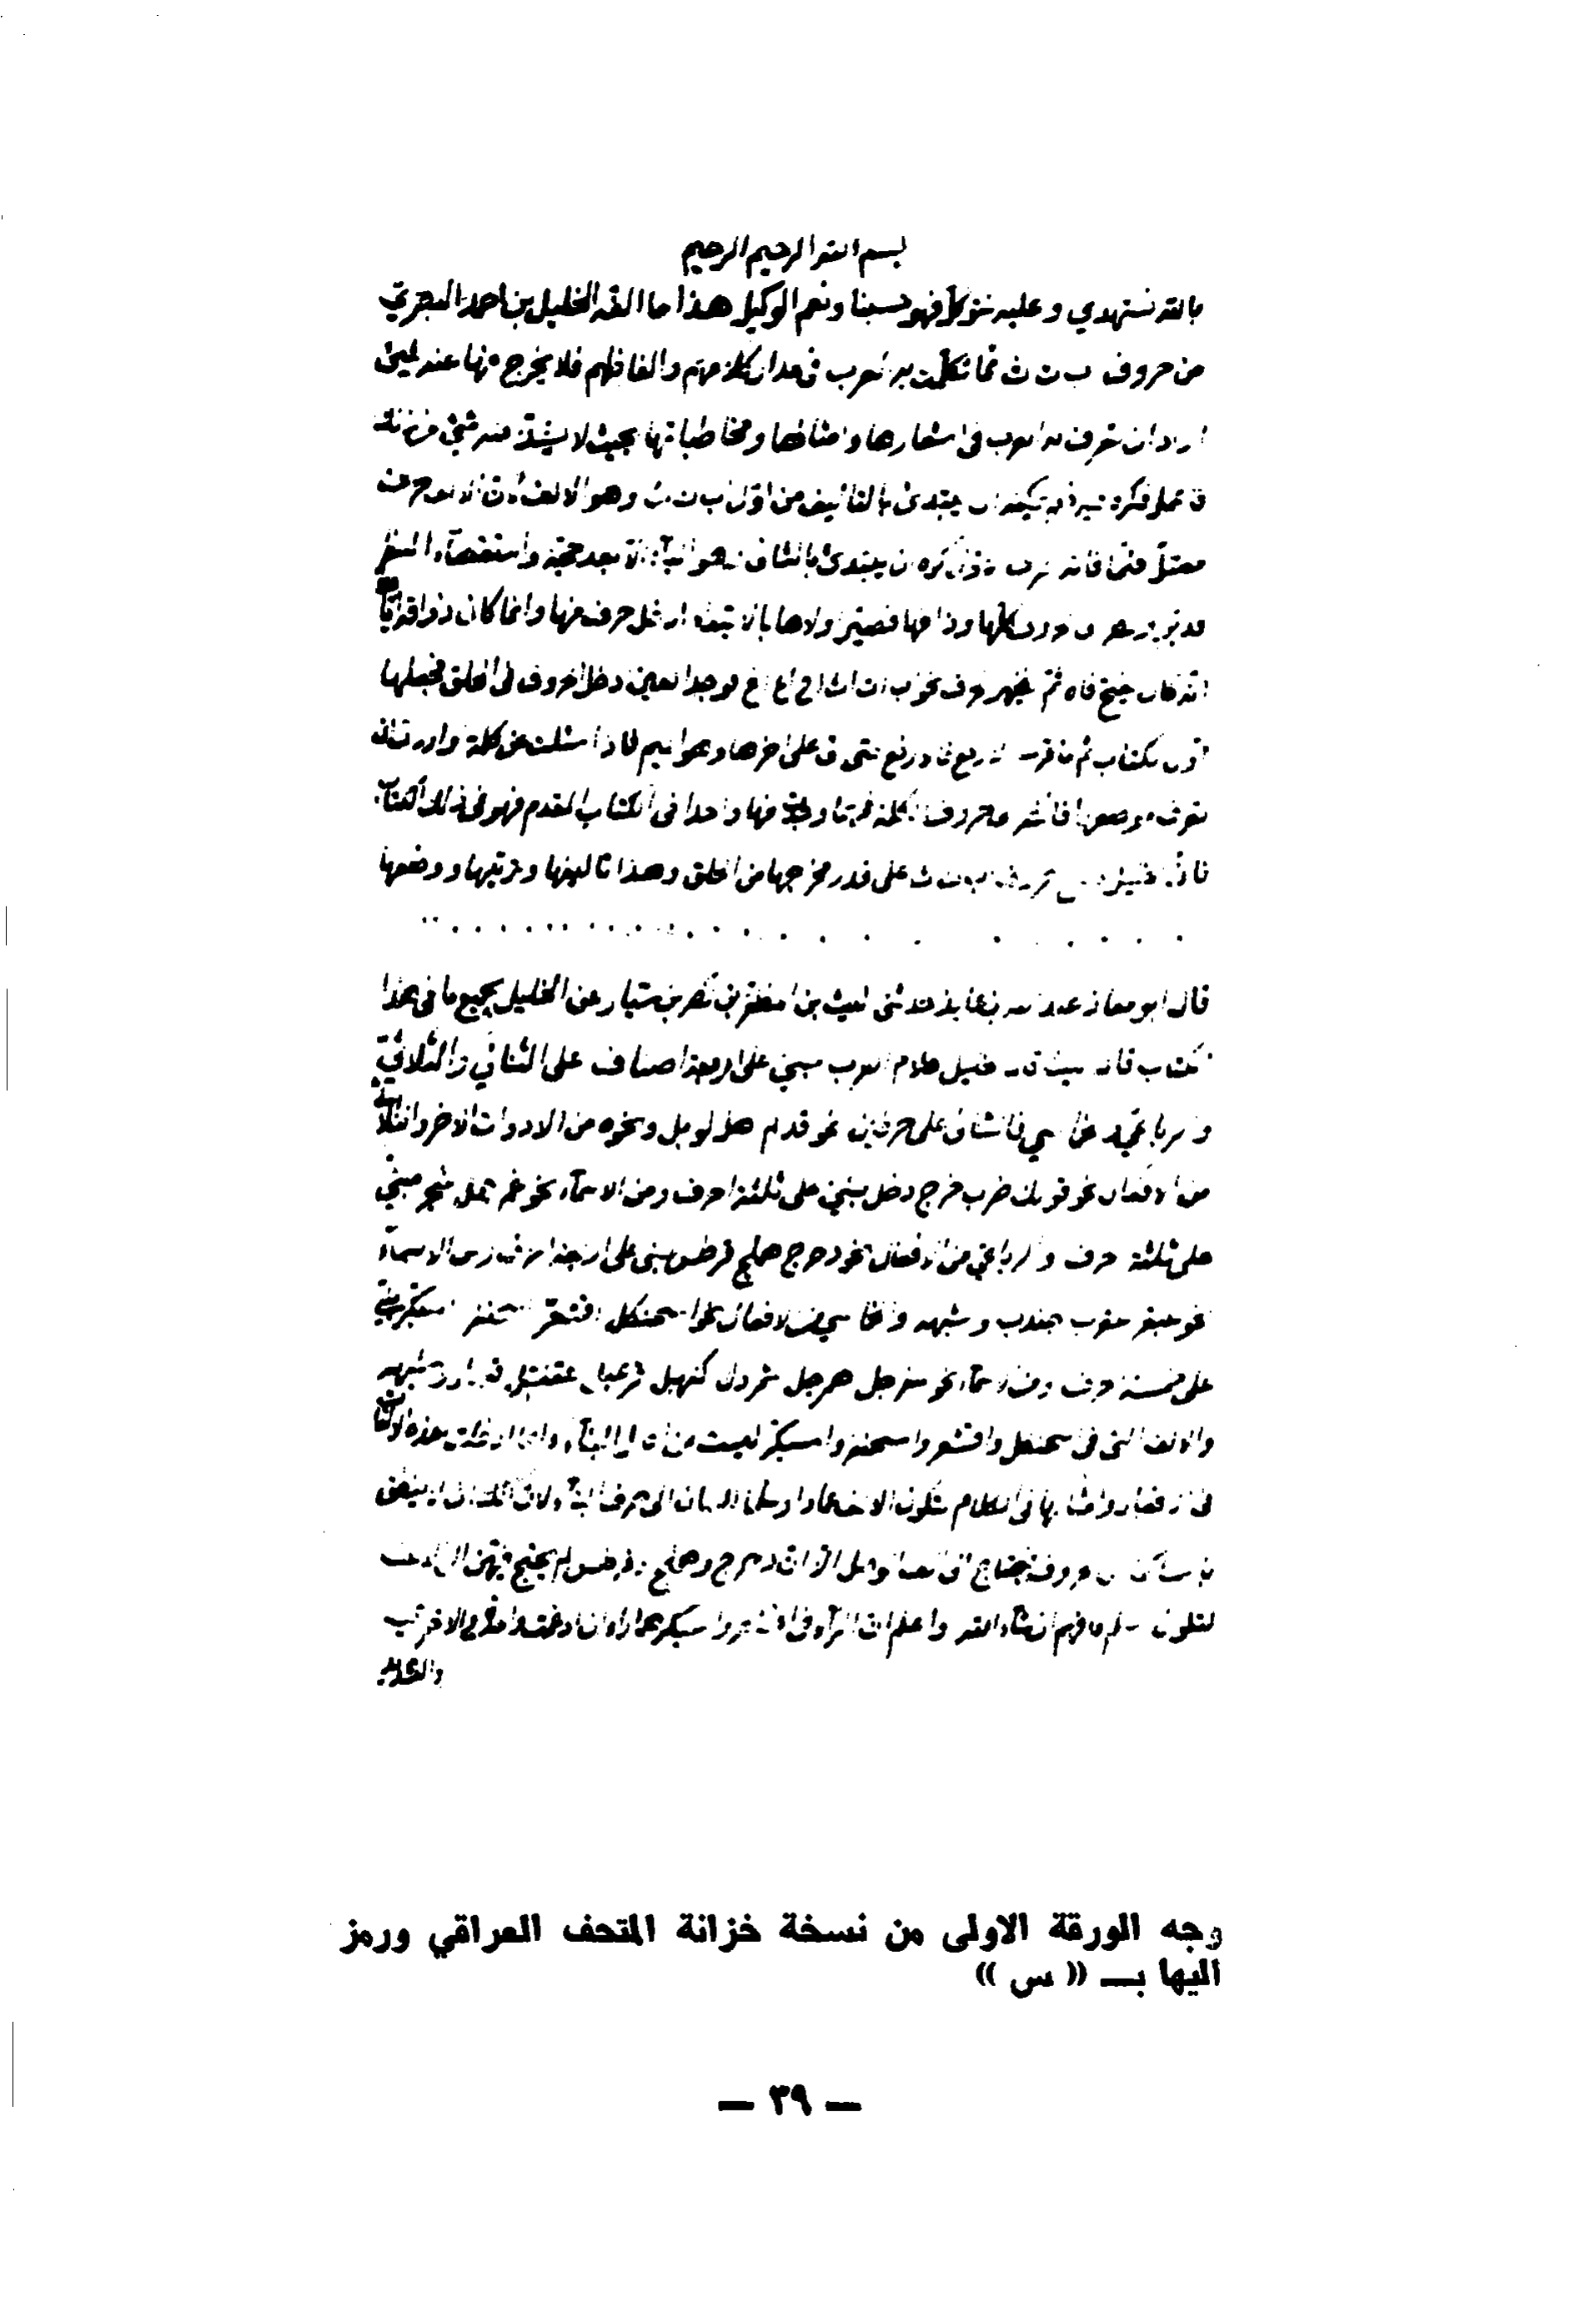 بسم الله الرحيم الرحيم
بالله نستهدي وعليه نتوكل فهو حسبنا ونعم الوكيل هذا ما الفه الخليل بن احمد البصري
من حروف ب ت ث مما تكلمت به العرب في مدار كلامهم والفاظهم فلا يخرج منها عنه شيئ
اراد ان تعرف به العرب في اشعارها وامثالها ومخاطباتها بحيث لا يشذ منه شيئ من ذلك
فاعمل فكره فيه فلم يمكنه ان يبتدئ بالتاليف من اول ب ت ث وهو الالف لان الالف حرف
معتل فلما فاته كره ان يبتدئ بالثاني وهو الباء الا بعد حجة واستقصاء النظر
فدبر الحروف كلها وذاقها فصير اولاها بالابتداء ادخل حرف منها وانما كان ذواقه اياها
انه كان يفتح فاه ثم يظهر الحرف نحو اب ات اث اح اع اغ فوجد العين ادخل الحروف في الحلق فجعلها
اول الكتاب ثم ما قرب الارفع فالارفع حتى اتى على اخرها وهو الميم فاذا سئلت عن كلمة واردت ان
تعرف موضعها فانظر الى حروف الكلمة فمهما وجدت منها واحدا في الكتاب المقدم فهو في ذلك الكتاب
ب ت ث على قدر مخرجها من الحلق وهذا تاليفها وترتيبها ووضعها
قال ابو معاذ عبد الله بن عايذ حدثني الليث بن المظفر بن نصر بن سيار عن الخليل بجميع ما في هذا
الكتاب قال الليث قال الخليل كلام العرب مبني على اربعة اصناف على الثنائي والثلاثي
والرباعي والخماسي فالثنائي على حرفين نحو قد لم هل لو بل ونحوه من الادوات
من الافعال نحو قولك ضرب خرج دخل مبني على ثلثة احرف ومن الاسماء نحو عمر جمل شجر مبني
على ثلثة احرف والرباعي من الافعال نحو دحرج هملج قرطس مبني على اربعة احرف ومن الاسماء
نحو عبقر عقرب جندب وشبهه والخماسي من الافعال نحو اسحنكل اقشعر اسحنفر اسبكر مبني
على خمسة احرف ومن الاسماء نحو سفرجل همرجل شمردل كنهبل قرعبل عقنقل وشبهه
والالف التي في اسحنكل واقشعر واسحنفر واسبكر ليست من اصل البناء وانما ادخلت هذه الالفات
في الافعال وامثالها في الكلام لتكون الالف عمادا وسلما للسان الى حرف البناء لان اللسان لا ينطلق
بالساكن من الحروف فيحتاج الى الف الوصل الا ان دحرج وهملج وقرطس لم يحتج فيهن الى الالف
لتكون السلم فافهم ان شاء الله واعلم ان الراء في اقشعر واسبكر هما راءان ادغمت واحدة في الاخرى
والتشديد
وجه الورقة الاولى من نسخة خزانة المتحف العراقي ورمز
اليها بـــ «س»
— ٣٩ —